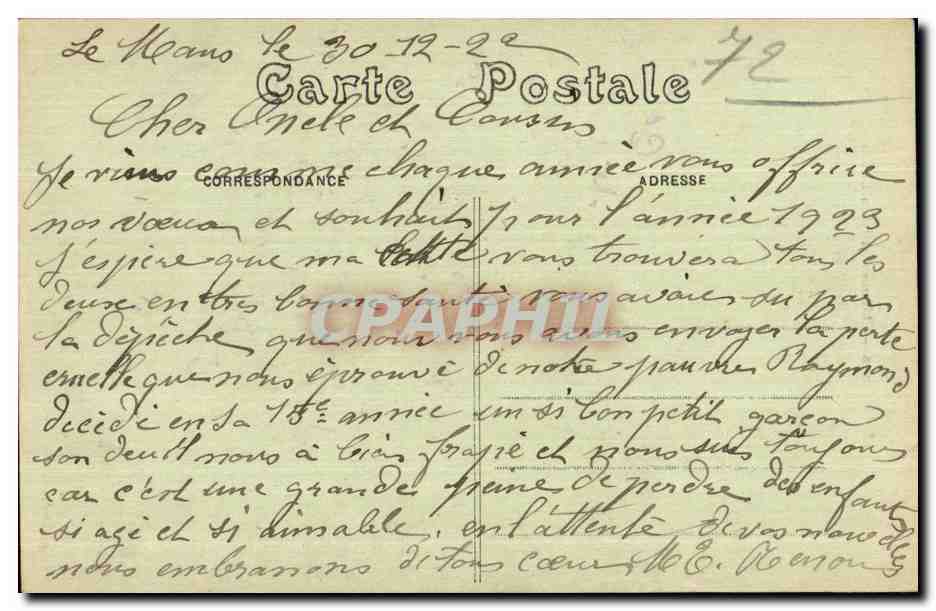 Le Mans le 30-12-22
72
Carte Postale
Cher Oncle et Cousins
Je viens comme chaque année vous offrire
CORRESPONDANCE ADRESSE
nos vœux et souhait pour l'année 1923
J'éspère que ma lettre vous trouvera tous les
deux en très bonne santé vous avaies su par
la dépêche que nour vous avons envoyer la perte
cruelle que nous éprouvé de notre pauvre Raymond
décidé en sa 15e année un si bon petit garçon
son deuil nous à bien frapé et nous suis toujours
car c'est une grande peine de perdre des enfants
si agé et si aimable. en l'attente de vos nouvelles
nous embrassons de tous cœur M E.
CPAPHIL